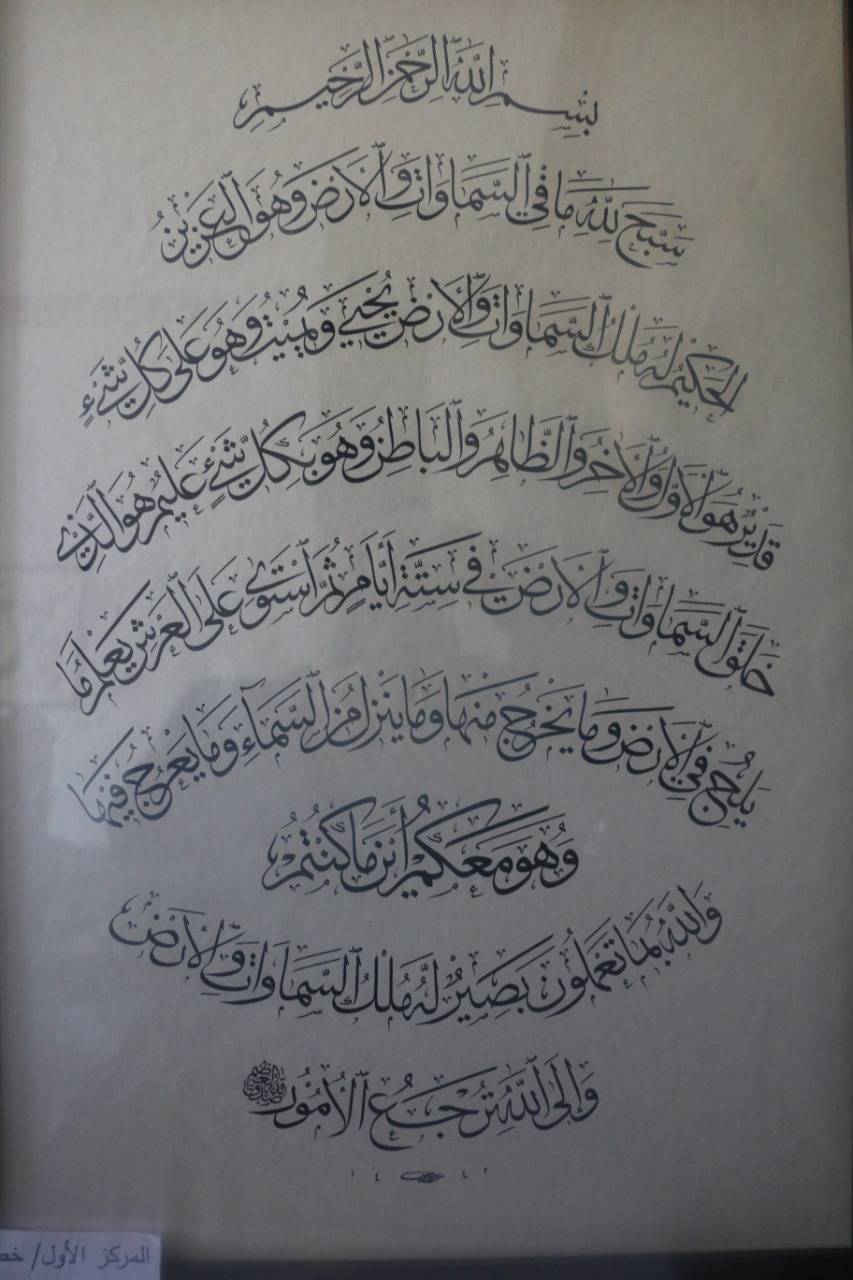 بِسْمِ اللَّهِ الرَّحْمَنِ الرَّحِيمِ
سَبَّحَ لِلَّهِ مَا فِي السَّمَاوَاتِ وَالْأَرْضِ وَهُوَ الْعَزِيزُ
الْحَكِيمُ لَهُ مُلْكُ السَّمَاوَاتِ وَالْأَرْضِ يُحْيِي وَيُمِيتُ وَهُوَ عَلَى كُلِّ شَيْءٍ
قَدِيرٌ هُوَ الْأَوَّلُ وَالْآخِرُ وَالظَّاهِرُ وَالْبَاطِنُ وَهُوَ بِكُلِّ شَيْءٍ عَلِيمٌ هُوَ الَّذِي
خَلَقَ السَّمَاوَاتِ وَالْأَرْضَ فِي سِتَّةِ أَيَّامٍ ثُمَّ اسْتَوَى عَلَى الْعَرْشِ يَعْلَمُ مَا
يَلِجُ فِي الْأَرْضِ وَمَا يَخْرُجُ مِنْهَا وَمَا يَنْزِلُ مِنَ السَّمَاءِ وَمَا يَعْرُجُ فِيهَا
وَهُوَ مَعَكُمْ أَيْنَ مَا كُنْتُمْ
وَاللَّهُ بِمَا تَعْمَلُونَ بَصِيرٌ لَهُ مُلْكُ السَّمَاوَاتِ وَالْأَرْضِ
وَإِلَى اللَّهِ تُرْجَعُ الْأُمُورُ
المركز الأول/